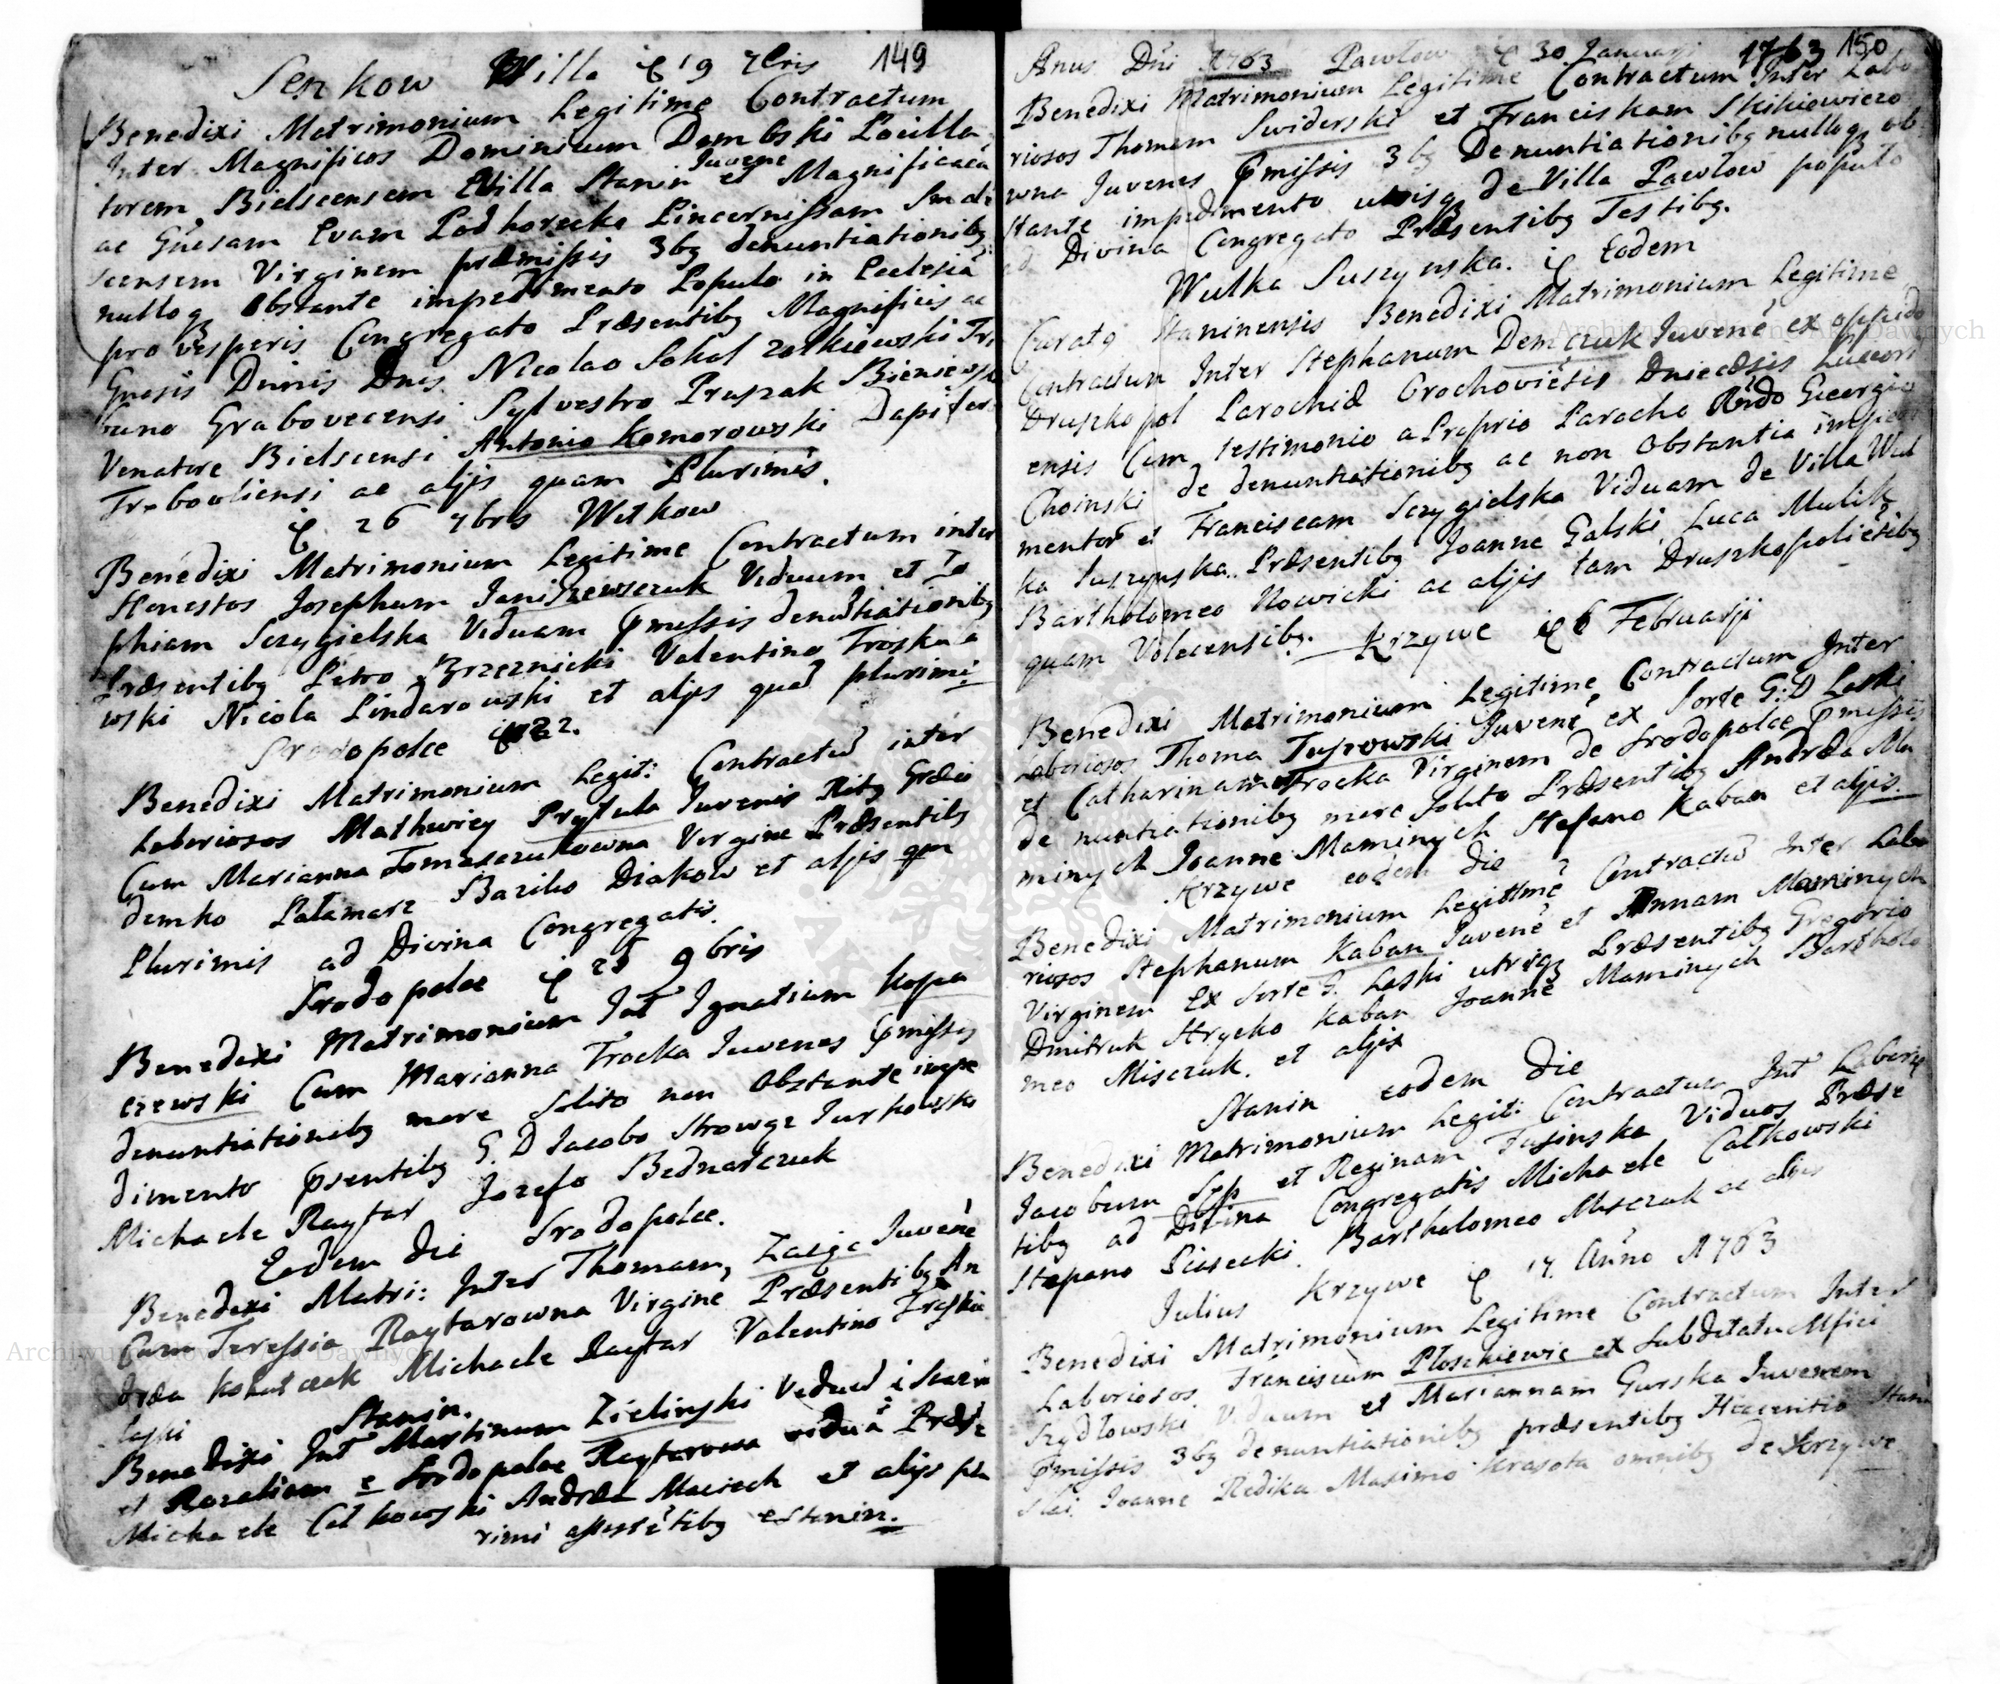 149
Senkow Villa 19 7bris
Benedixi Matrimonium Legitime Contractum
Inter Magnificos Dominicum Dembski Pocilla
torem Bielscensem Villa Stanin Juvene et Magnificam
ac Gnesam Evam Podhorecka Pincernissam Smoli
scensem Virginem præmissis 3bq denuntiationibq
nulloq obstante impedimento Populo in Ecclesia
pro vesperis Congregato Præsentibq Magnificis ac
Gnesis Dnnis Dnis Nicolao Sokol zolkiewski Tri
buno Grabovecensi Sylvestro Pruszak Bieniewski
Venatore Bielscensi Antonio Komorowski Dapifero
Trebowliensi ac alijs quam Plurimis.
26 7bris Witkow
Benedixi Matrimonium Legitime Contractum inter
Honestos Josephum Janiszewsczuk Viduum et Zo
phiam Sczygielska Viduam præmissis denutiationibq
Præsentibq Petro Brzeznicki Valentino Troska a
wski Nicola Lindarowski et alijs quad plurimi
Srodopolce 22.
Benedixi Matrimonium Legit: Contractu inter
Laboriosos Mathwiey Prytula Juvenis Ritq Græci
Cum Marianna Tomasczukowna Virgine Præsentibq
demko Palamarz Bazilio Diakow et alijs qm
Plurimis ad Divina Congregatis.
Srodopolce 25 9bris
Benedixi Matrimonium Int Ignatium Kopa
czewski Cum Marianna Trocka Juvenes pmissis
denuntiationibq more solito non Obstante impe
dimento psentibq G. D Jacobo Strowgz Jurkowski
Michaele Raytar Jozefo Bednarczuk
Eodem die Srodopolce.
Benedixi Matri: Inter Thomam, Zaige Juvene
Cum Teressia Raytarowna Virgine Præsentibq An
dræa Kohutczak Michaele Raytar Valentino Troska
laski Stanin.
Benedixi Int Martinum Zielinski Viduu i Stanin
et Rozaliam e Srodopolce Raytarowa vidua Præse
Michaele Calkowski Andræa Maciech et alijs plu
rimi assistetibq e Stanin.
1763 150
Anus Dni 1763 Pawlow 30 Januarj
Benedixi Matrimonium Legitime Contractum Inter Labo
riosos Thomam Swiderski et Franciskam Skikiewiczo
wna Juvenes pmissis 3bq Denuntiationibq nulloq ob
stante impedimento utrisq de Villa Pawlow populo
ad Divina Congregato Præsentibq Testibq.
Wulka Suszynska. Eodem
Curatq Staninensis Benedixi Matrimonium Legitime
Contractum Inter Stephanum Demczuk Juvene ex oppido
Druszkopol Parochiæ Orochoviesis Dniecæsis Luceori
ensis Cum testimonio a Proprio Parocho Rndo Georgio
Choinski de denuntiationibq ac non Obstantia impedi
mentor et Franciscam Sczygielska Viduam de Villa Wul
ka Suszynska. Præsentibq Joanne Galski Luca Mulik
Bartholomeo Nowicki ac alijs tam Druszkopolietibq
quam Volecensibq. Krzywe 6 Februarji
Benedixi Matrimonium Legitime Contractum Inter
Laboriosos Thoma Tuszowski Juvene ex Sorte G: D Laski
et Catharinam Trocka Virginem de Srodopolce pmissis
denuntiationibq more solito Præsentibq Andræa Ma
minych Joanne Maminych Stefano Kaban et alijs.
Krzywe eodem die
Benedixi Matrimonium Legittime Contractu Inter Labo
riosos Stephanum Kaban Juvene et Annam Maminych
Virginem Ex Sorte G. Laski utrisq Præsentibq Gregorio
Dmitruk Hrycko Kaban Joanne Maminych Bartholo
meo Misczuk. et alijs
Stanin eodem Die
Benedixi Matrimonium Legiti: Contractum Int Laborio
Jacobum Sep et Reginam Fusinska Viduos Præse
tibq ad Divina Congregatis Michaele Calkowski
Stepano Piasecki. Bartholomeo Misczuk ac alijs
Julius Krzywe 17. Anno 1763
Benedixi Matrimonium Legitime Contractum Inter
Laboriosos Franciscum Ploszkiewic ex Subditatu Mfici
Szydlowski Viduum et Mariannam Gurska Juvenem
pmissis 3bq denuntiationibq præsentibq Hiacentio Stani
slai Joanne Redika Maximo Krasota omnibq de Krzywe